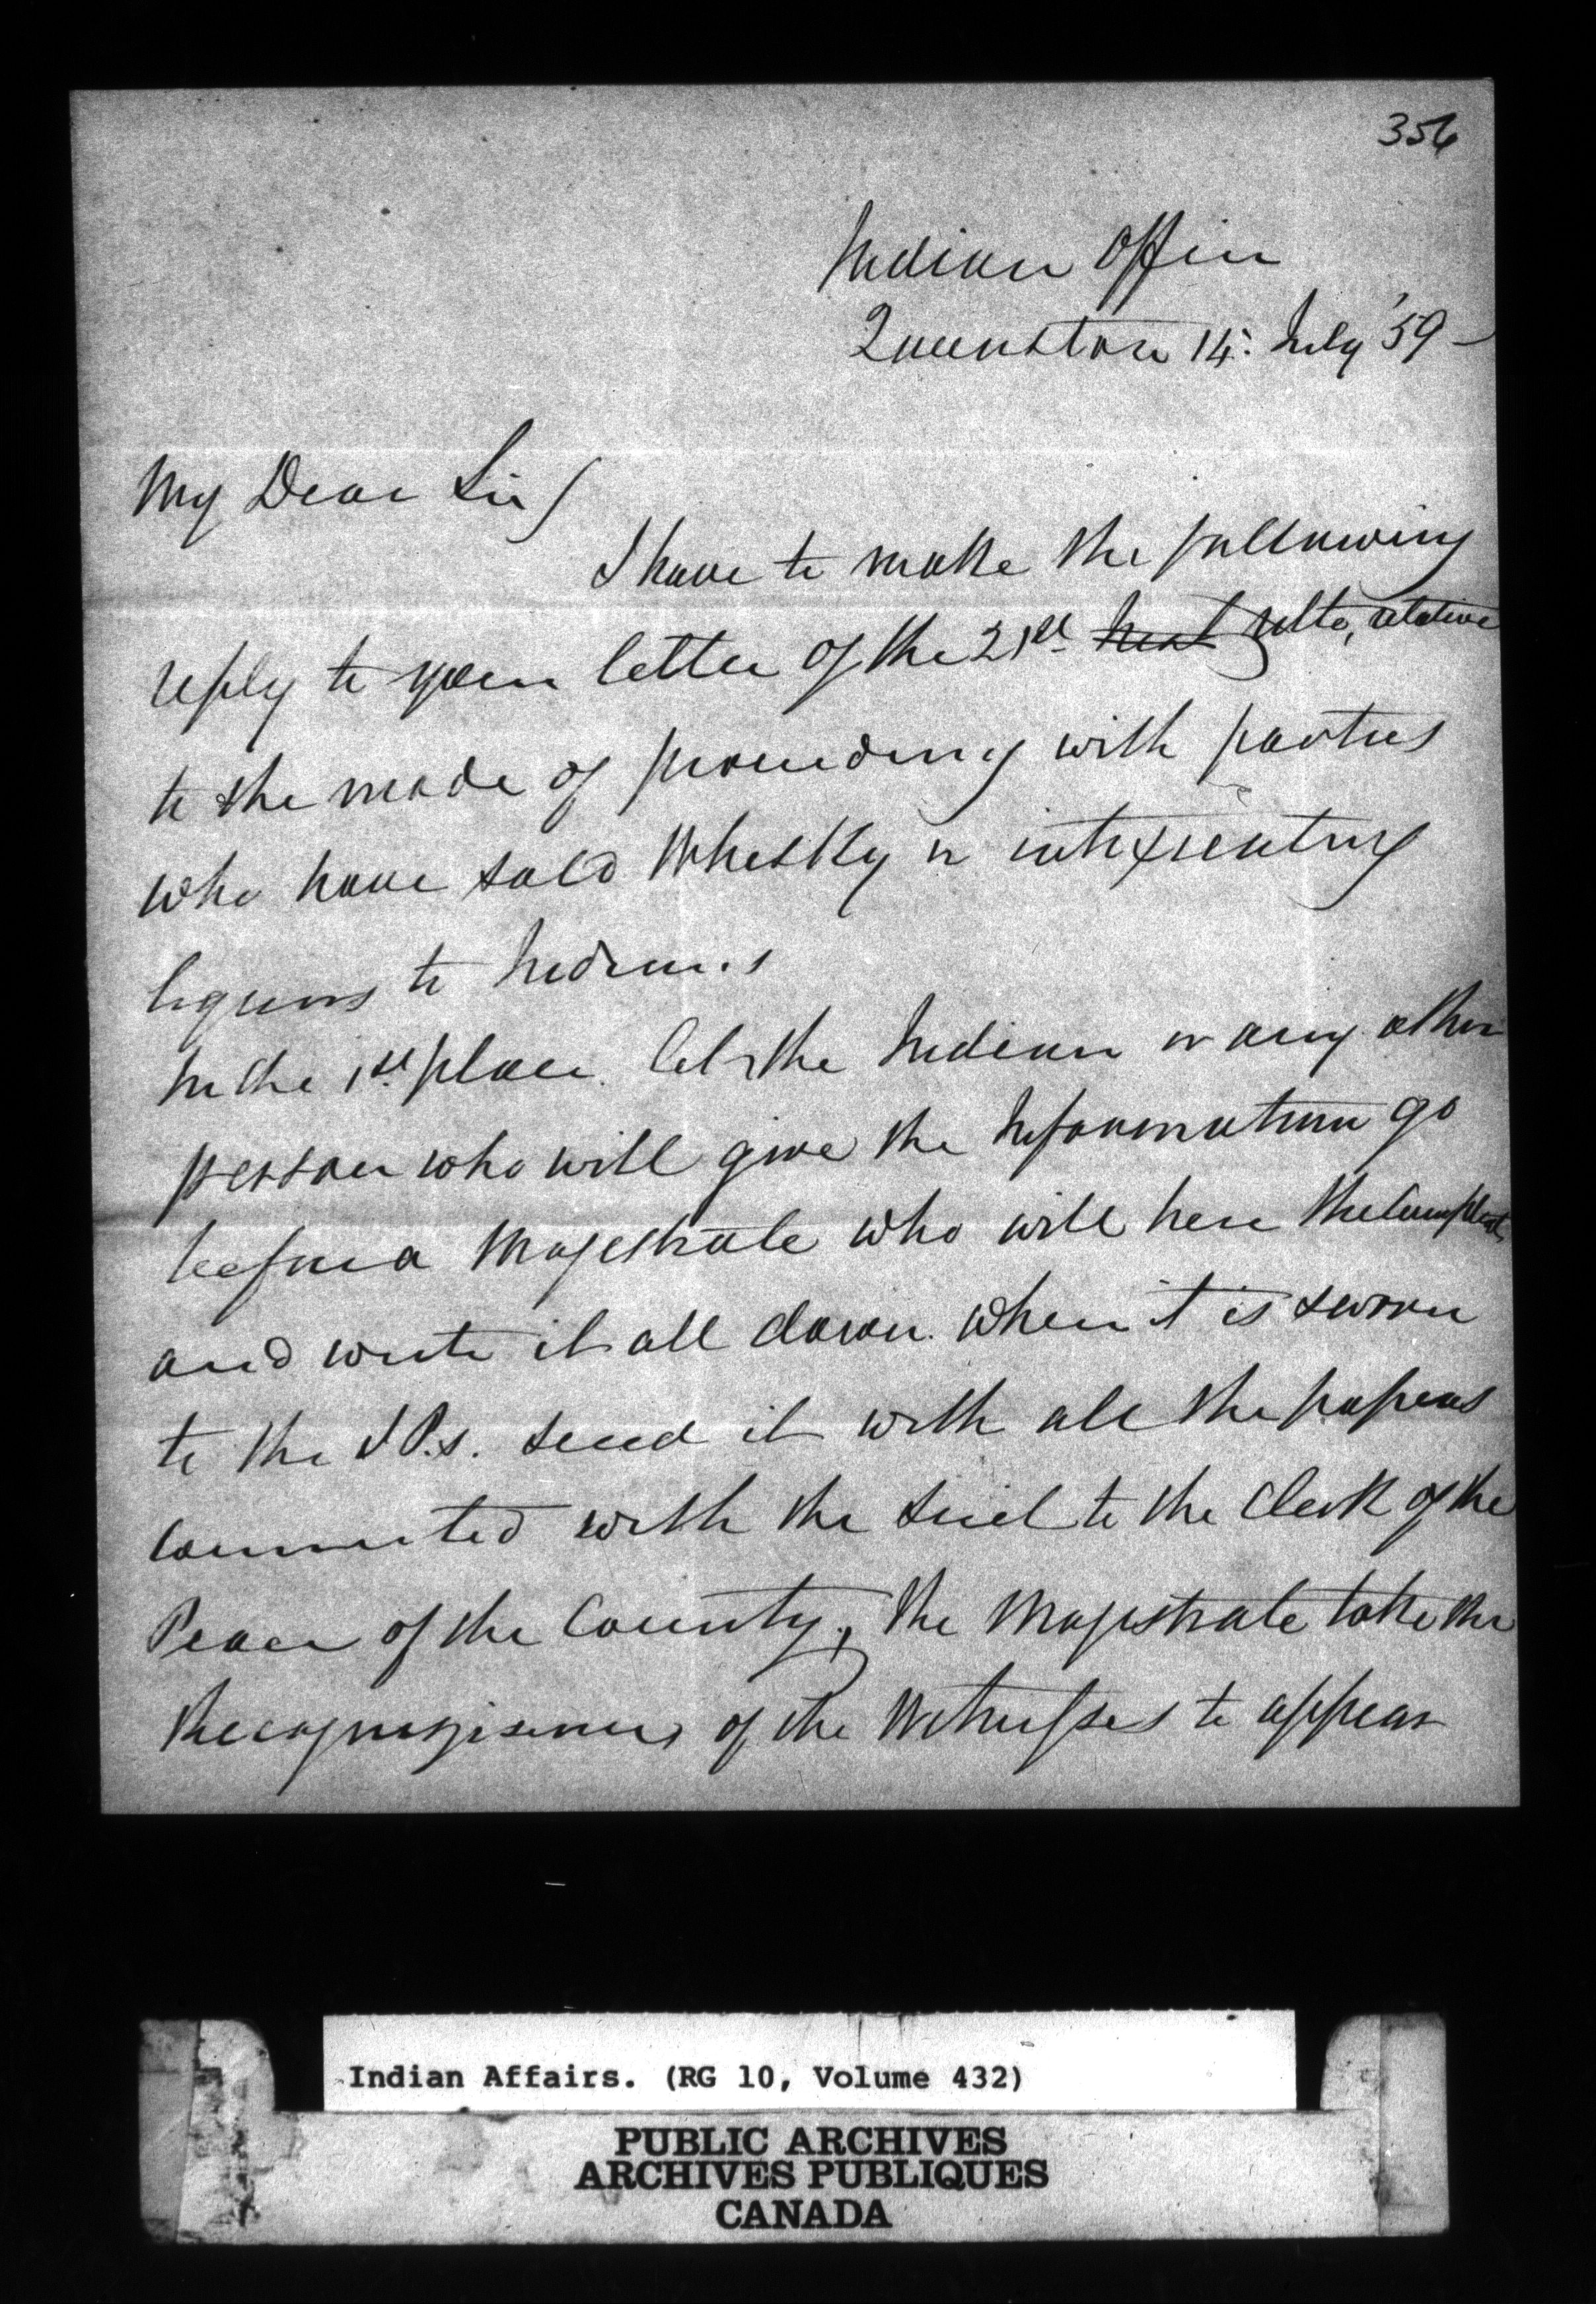 356
Indian Office
Queenston 14. July '59
My Dear Sir/
I have to make the following
reply to your letter of the 21st Inst ulto, relative
to the mode of proceeding with parties
who have sold Whiskky or intoxicating
liquors to Indians
In the 1st place let the Indian or any other
person who will give the Information go
before a Magistrate who will hear the Complaint
and write it all down. When it is sworn
to the J P.s. send it with all the papers
connected with the suit to the Clerk of the
Peace of the County, the Magistrate take the
Recognizances of the Witnesses to appear
Indian Affairs. (RG 10, Volume 432)
PUBLIC ARCHIVES
ARCHIVES PUBLIQUES
CANADA